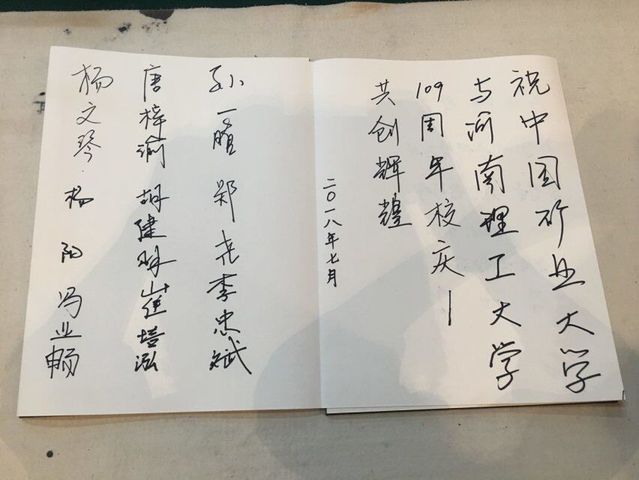 祝中国矿业大学
与河南理工大学
109周年校庆!
共创辉煌
二〇一八年七月
孙一 郑尧 李忠斌
唐梓渝 胡建林 崔培泓
杨文琴 杨阳 冯业畅